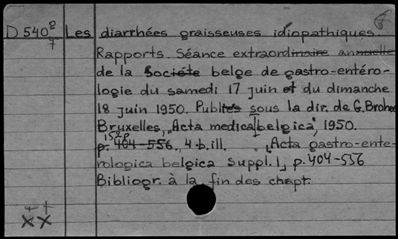 D 540 2/7 Les diarrhées graisseuses idiopathiques.
Rapports. Séance extraordinaire annuelle
de la Société belge de gastro-entéro-
logie du samedi 17 juin et du dimanche
18 juin 1950. Publiés sous la dir. de G. Brohee
Bruxelles, "Acta medica belgica", 1950.
152p
p. 404-556., 4 b. ill. "Acta gastro-ente-
rologica belgica Suppl. 1, p. 404-556
Bibliogr. à la fin des chapt.
++
XX